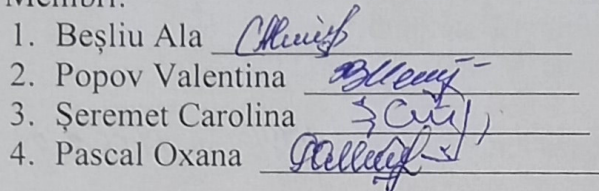 1. Beșliu Ala
2. Popov Valentina
3. Șeremet Carolina
4. Pascal Oxana